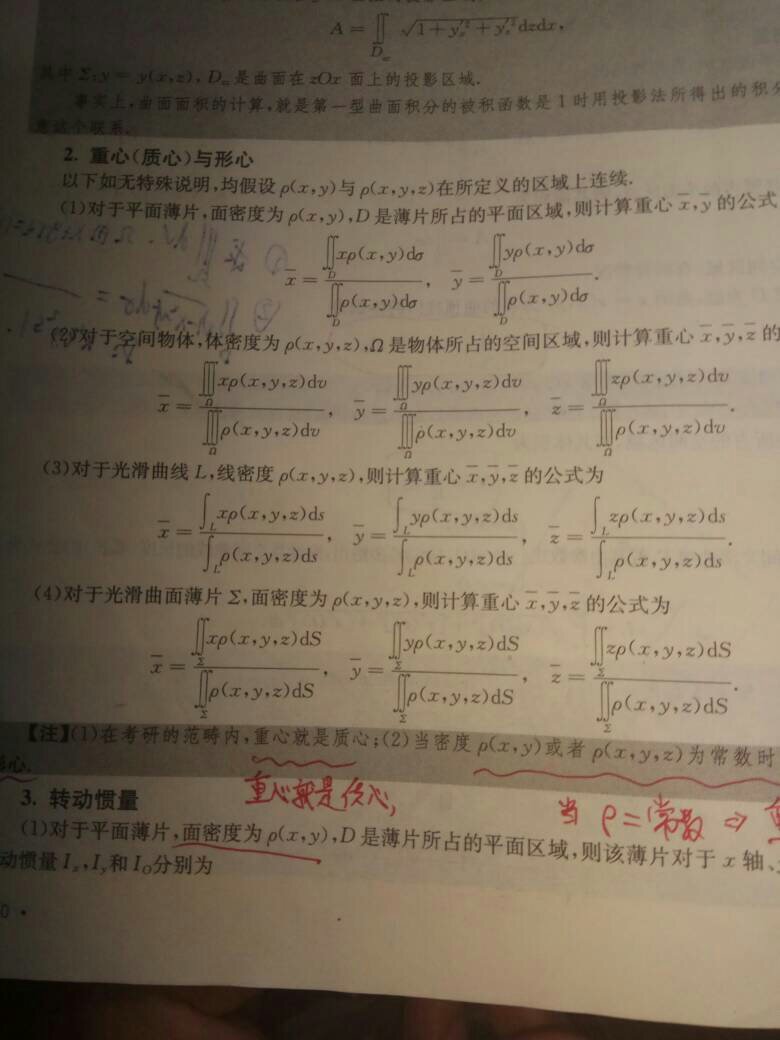 A = ∬_{D_{zx}} √(1+y'_x²+y'_z²) dzdx,
其中 Σ:y = y(x,z), D_{zx} 是曲面在 zOx 面上的投影区域.
事实上,曲面面积的计算,就是第一型曲面积分的被积函数是 1 时用投影法所得出的积分
意这个联系.
2. 重心(质心)与形心
以下如无特殊说明,均假设 ρ(x,y)与 ρ(x,y,z)在所定义的区域上连续.
(1)对于平面薄片,面密度为 ρ(x,y),D 是薄片所占的平面区域,则计算重心 x̄,ȳ 的公式
x̄ = ∬_D xρ(x,y)dσ / ∬_D ρ(x,y)dσ, ȳ = ∬_D yρ(x,y)dσ / ∬_D ρ(x,y)dσ.
(2)对于空间物体,体密度为 ρ(x,y,z),Ω 是物体所占的空间区域,则计算重心 x̄,ȳ,z̄ 的
x̄ = ∭_Ω xρ(x,y,z)dv / ∭_Ω ρ(x,y,z)dv, ȳ = ∭_Ω yρ(x,y,z)dv / ∭_Ω ρ(x,y,z)dv, z̄ = ∭_Ω zρ(x,y,z)dv / ∭_Ω ρ(x,y,z)dv.
(3)对于光滑曲线 L,线密度 ρ(x,y,z),则计算重心 x̄,ȳ,z̄ 的公式为
x̄ = ∫_L xρ(x,y,z)ds / ∫_L ρ(x,y,z)ds, ȳ = ∫_L yρ(x,y,z)ds / ∫_L ρ(x,y,z)ds, z̄ = ∫_L zρ(x,y,z)ds / ∫_L ρ(x,y,z)ds.
(4)对于光滑曲面薄片 Σ,面密度为 ρ(x,y,z),则计算重心 x̄,ȳ,z̄ 的公式为
x̄ = ∬_Σ xρ(x,y,z)dS / ∬_Σ ρ(x,y,z)dS, ȳ = ∬_Σ yρ(x,y,z)dS / ∬_Σ ρ(x,y,z)dS, z̄ = ∬_Σ zρ(x,y,z)dS / ∬_Σ ρ(x,y,z)dS.
【注】(1)在考研的范畴内,重心就是质心;(2)当密度 ρ(x,y)或者 ρ(x,y,z)为常数时
心.
重心就是质心,
当 ρ=常数 ⇒
3. 转动惯量
(1)对于平面薄片,面密度为 ρ(x,y),D 是薄片所占的平面区域,则该薄片对于 x 轴、
动惯量 I_x,I_y和 I_O分别为
0 ·